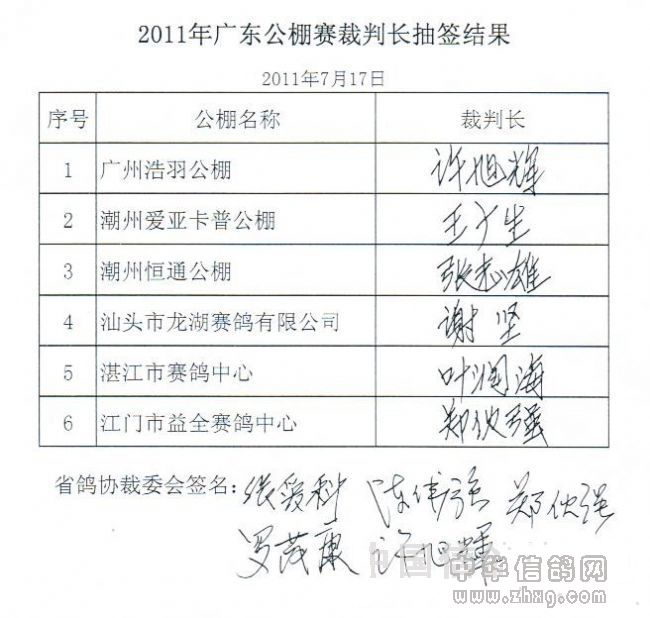 2011年广东公棚赛裁判长抽签结果
2011年7月17日
序号 公棚名称 裁判长
1 广州浩羽公棚 许旭辉
2 潮州爱亚卡普公棚 王少生
3 潮州恒通公棚 张志雄
4 汕头市龙湖赛鸽有限公司 谢坚
5 湛江市赛鸽中心 叶润海
6 江门市益全赛鸽中心 郑伙强
省鸽协裁委会签名：张爱科 陈伟强 郑伙强
罗茂康 许旭辉
中华信鸽网
www.zhxg.com